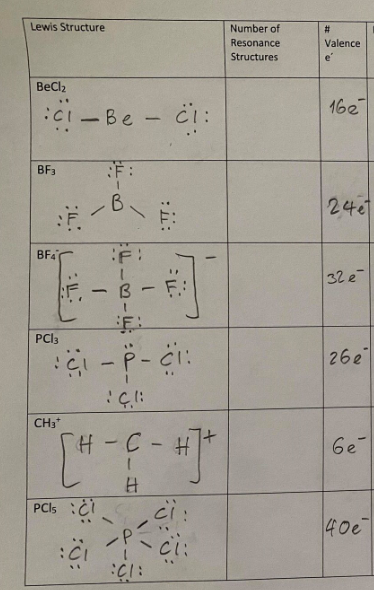 Lewis Structure
Number of
Resonance
Structures
#
Valence
e⁻
BeCl₂
:Cl — Be — Cl:
16e⁻
BF₃
:F:
B
:F
F:
24e⁻
BF₄⁻
:F:
[:F — B — F:]⁻
:F:
32e⁻
PCl₃
:Cl — P — Cl:
:Cl:
26e⁻
CH₃⁺
[H — C — H]⁺
H
6e⁻
PCl₅
:Cl
Cl:
P
:Cl
Cl:
:Cl:
40e⁻